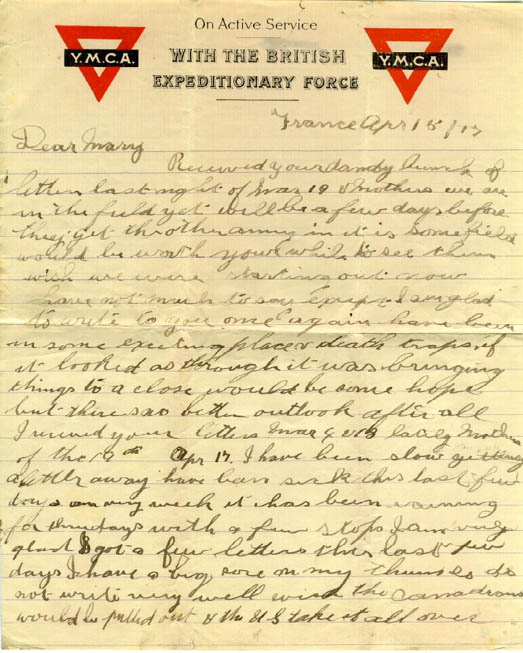 On Active Service
Y.M.C.A. WITH THE BRITISH Y.M.C.A.
EXPEDITIONARY FORCE
France Apr 15/17
Dear Mary
Received your dandy bunch of
letters last night of Mar 19 & Mothers we are
in the field yet will be a few days before
they get the other army in it is some field
would be worth your while to see them
wish we were starting out now
have not much to say except I am glad
to write to you once again have been
in some exciting places & death traps if
it looked as through it was bringing
things to a close would be some hope
but there is a better outlook after all
I received your letters Mar 4 lately Mothers
of the Apr 17 I have been slow getting
a letter away have been sick this last few
days am very weak it has been raining
for three days with a few stops I am very
glad I got a few letters this last few
days I have a big sore on my thumb so do
not write very well wish the Canadians
would be pulled out & the U S take it all over